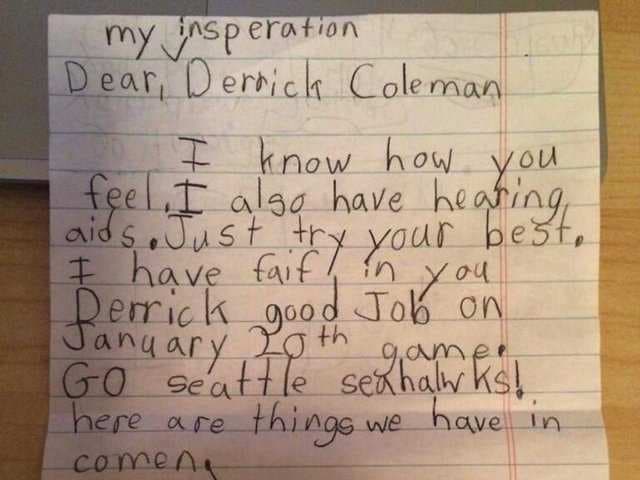 my insperation
Dear, Derrick Coleman
I know how you
feel. I also have hearing
aids. Just try your best.
I have faif in you
Derrick good Job on
January 20th game.
GO seattle seahalwks!
here are things we have in
comen.